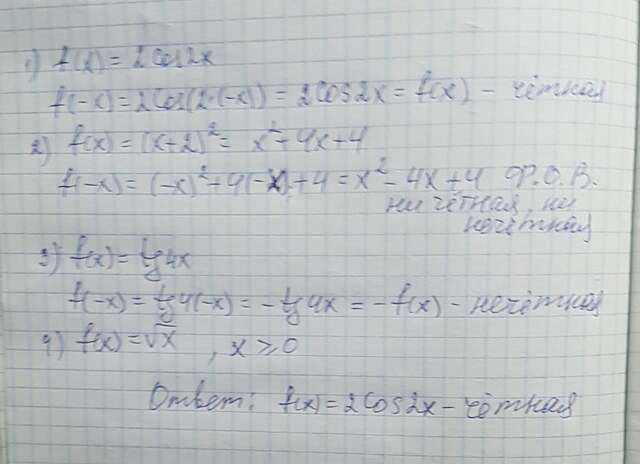 1) f(x) = 2cos2x
f(-x) = 2cos(2·(-x)) = 2cos2x = f(x) - чётная
2) f(x) = (x+2)² = x²+4x+4
f(-x) = (-x)²+4(-x)+4 = x²-4x+4 Ф.О.В.
ни чётная, ни
нечётная
3) f(x) = tg4x
f(-x) = tg4(-x) = -tg4x = -f(x) - нечётная
4) f(x) = √x , x ⩾ 0
Ответ: f(x) = 2cos2x - чётная